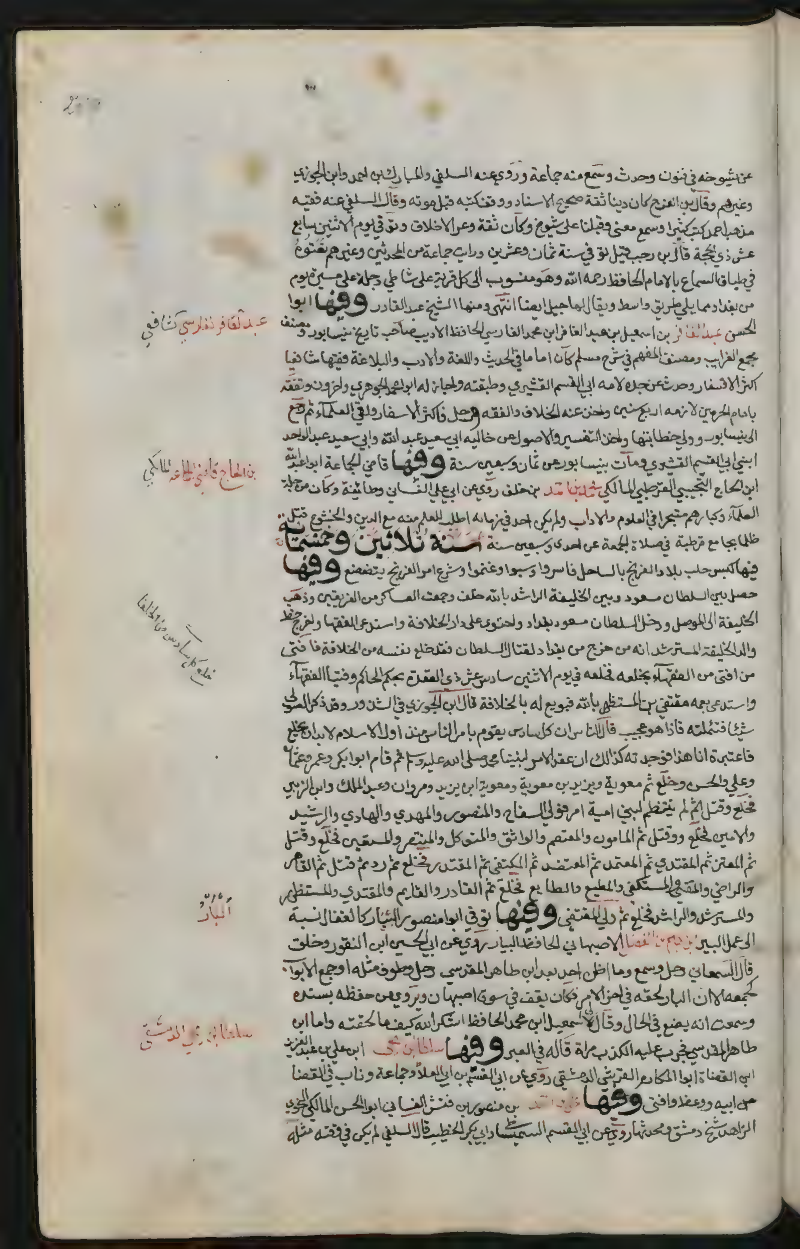 عن شيوخه في فنون وحدث وسمع منه جماعة وروى عنه السلفي والمبارك بن احمد وابن الجوزي
وغيرهم وقال بن كان دينا ثقة صحيح الاسناد ووقف كتبه قبل موته وقال السلفي عنه فقيه
مذهب احمد كتب كثيرا وسمع معنى وقبلنا على شيوخ وكان ثقة وعر الاخلاق وتوفي يوم الاثنين سابع
عشر ذي الحجة قال بن رجب قيل توفي سنة ثمان وعشرين ورايت جماعة من المحدثين وغيرهم
في طباق السماع بالامام الحافظ رحمه الله وهو منسوب الى قرية على شاطي دجلة على مسيرة يوم
من بغداد مما يلي طريق واسط ويقال لها جيل ايضا انتهى ومنها الشيخ عبد القادر وفيها ابوا
الحسن عبد الغافر بن اسمعيل بن عبد الغافر ابن محمد الفارسي الحافظ الاديب صاحب تاريخ نيسابور ومصنف
مجمع الغرايب ومصنف المفهم في شرح مسلم كان اماما في الحديث واللغة والادب والبلاغة فقيها شافعيا
اكثر الاسفار وحدث عن جده لامه ابي القسم القشيري وطبقته واجاز له ابو محمد الجوهري واخرون وتفقه
بامام الحرمين لازمه اربع سنين واخذ عنه الخلاف والفقه ورحل فاكثر الاسفار ولقي العلماء ثم رجع
الى نيسابور وولي خطابتها واخذ التفسير والاصول عن خاليه ابي سعد عبد الله وابي سعيد عبد الواحد
ابني ابي القسم القشيري ومات بنيسابور عن ثمان وسبعين سنة وفيها قاضي الجماعة ابو عبد الله
ابن الحاج التجيبي القرطبي المالكي محمد بن احمد بن خلف روى عن ابي علي الغساني وطائفة وكان من جلة
العلماء وكبارهم متبحرا في العلوم والاداب ولم يكن احد في زمانه اطلب للعلم منه مع الدين والخشوع قتل
ظلما بجامع قرطبة في صلاة الجمعة عن احدى وسبعين سنة سنة ثلاثين وخمسمائة
فيها كبس حلب بلاد الفرنج بالساحل فاسروا وسبوا وغنموا وشرع امر الفرنج يتضعضع وفيها
حصل بين السلطان مسعود وبين الخليفة الراشد بالله خلف وجمعت العساكر من الفريقين وذهب
الخليفة الى الموصل ودخل السلطان مسعود بغداد واحتوى على دار الخلافة واستدعى الفقها واخرج خط
والد الخليفة المسترشد انه من خرج من بغداد لقتال السلطان فقد خلع نفسه من الخلافة فافتى
من افتى من الفقهاء بخلعه فخلعه في يوم الاثنين سادس عشر ذي القعدة بحكم الحاكم وفتيا الفقهاء
واستدعى بعمه مقتفي بن المستظهر بالله فبويع له بالخلافة قال ابن الجوزي في الشذور وقد ذكر الصولي
شيئا فتاملته فاذا هو عجيب قال الناس ان كل سادس يقوم بامر الناس منذ اول الاسلام لابد ان يخلع
فاعتبرت انا هذا فوجدته كذالك ان عقد الامر لنبينا محمد صلى الله عليه وسلم ثم قام ابوا بكر وعمر وعثمان
وعلي والحسن وخلع ثم معوية ويزيد بن معوية ومعوية ابن يزيد ومروان وعبد الملك وابن الزبير
فخلع وقتل ثم لم ينتظم لبني امية امر فولي السفاح والمنصور والمهدي والهادي والرشيد
والامين فخلع وقتل ثم المامون والمعتصم والواثق والمتوكل والمنتصر والمستعين فخلع وقتل
ثم المعتز ثم المهتدي ثم المعتمد ثم المعتضد ثم المكتفي ثم المقتدر فخلع ثم رد ثم قتل ثم القاهر
والراضي والمتقي والمستكفي والمطيع والطايع فخلع ثم القادر والقايم والمقتدي والمستظهر
والمسترشد والراشد فخلع ثم ولي المقتفي وفيها توفي ابوا منصور البئار كالغفال نسبة
الى عمل البير بن الفضل الاصبهاني الحافظ البيار روى عن ابي الحسين ابن النقور وخلق
قال السمعاني رحل وسمع وما اظن احد بعد ابن طاهر المقدسي رحل وطوف مثله او جمع الابواب
كجمعه الا ان البار لحقه في اخر الامر فكان يقف في سوق اصبهان ويروي من حفظه بسنده
وسمعت انه يضع في الحال وقال لي اسمعيل ابن محمد الحافظ اشكر الله كيف ما لحقته واما ابن
طاهر المقدسي فجرب عليه الكذب مراة قاله في العبر وفيها سلطان بن يحيى ابن علي بن عبد العزيز
ابن القضاة ابوا المكارم القرشي الدمشقي روى عن ابي القسم بن ابي العلاء وجماعة وناب في القضا
عن ابيه ووعظ وافتى وفيها علي بن احمد بن منصور بن قبيس الغساني ابوا الحسن المالكي النحوي
الزاهد شيخ دمشق ومحدثها روى عن ابي القسم السميساطي وابي بكر الخطيب قال السلفي لم يكن في وقته مثله
عبد الغافر الفارسي الشافعي
بن الحاج قاضي الجماعة المالكي
خلع كل سادس من الخلفا
البار
سلطان بن يحيى الدمشقي